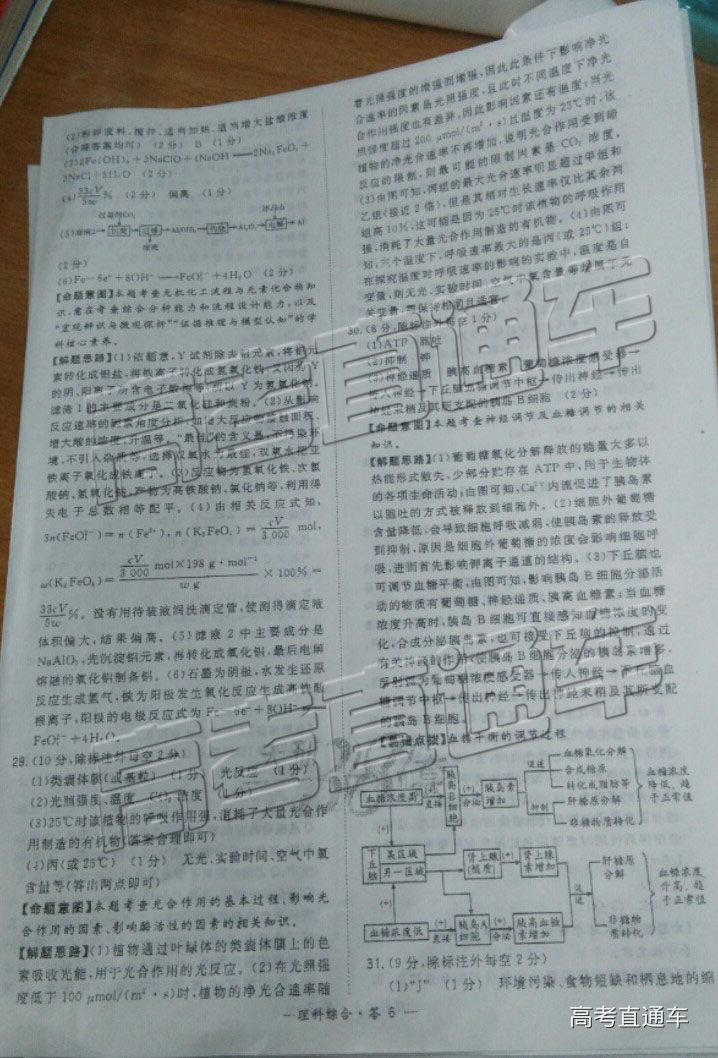 (2)粉碎废料、搅拌、适当加热、适当增大盐酸浓度
(合理答案均可) (2分) B (1分)
(3)2Fe(OH)₃+3NaClO+4NaOH══2Na₂FeO₄+
3NaCl+5H₂O (2分)
(4)33cV/5w% (2分) 偏高 (1分)
过量的CO₂ 冰晶石
(5)滤液2→沉淀→过滤→Al(OH)₃→灼烧→Al₂O₃→电解→Al
滤液
(2分)
(6)Fe-6e⁻+8OH⁻══FeO₄²⁻+4H₂O (2分)
【命题意图】本题考查无机化工流程与元素化合物知
识,意在考查综合分析能力和流程设计能力,以及
“宏观辨识与微观探析”“证据推理与模型认知”的学
科核心素养。
【解题思路】(1)依题意,Y试剂除去铝元素,将铝元
素转化成铝盐,将铁离子转化成氢氧化铁,
滤渣1的主要成分是二氧化硅和炭粉。(2)从影响
反应速率的因素角度分析,如增大反应物接触面积、
增大酸的浓度、升温等。“最佳”的含义是,不污染环
境、不引入杂质等,选择双氧水为最佳,双氧水把亚
铁离子氧化成铁离子。(3)反应物为氢氧化铁、次氯
酸钠、氢氧化钠,产物为高铁酸钠、氯化钠等,利用得
失电子总数相等配平。(4)由相关反应式知,
3n(FeO₄²⁻)=n(Fe²⁺),n(K₂FeO₄)=cV/3 000 mol,
w(K₂FeO₄)=(cV/3 000 mol×198 g·mol⁻¹)/(w g)×100%=
33cV/5w%。没有用待装液润洗滴定管,使测得滴定液
体积偏大,结果偏高。(5)滤液2中主要成分是
NaAlO₂,先沉淀铝元素,再转化成氧化铝,最后电解
熔融的氧化铝制备铝。(6)石墨为阴极,水发生还原
反应生成氢气,铁为阳极发生氧化反应生成高铁酸
根离子,阳极的电极反应式为Fe-6e⁻+8OH⁻══
FeO₄²⁻+4H₂O。
29.(10分,除标注外每空2分)
(1)类囊体膜(或基粒) (1分) 光反应 (1分)
(2)光照强度、温度 CO₂浓度 (1分)
(3)25℃时该植物的呼吸作用强,消耗了大量光合作
用制造的有机物(答案合理即可)
(4)丙(或25℃) (1分) 无光、实验时间、空气中氧
含量等(答出两点即可)
【命题意图】本题考查光合作用的基本过程、影响光
合作用的因素、影响酶活性的因素的相关知识。
【解题思路】(1)植物通过叶绿体的类囊体膜上的色
素吸收光能,用于光合作用的光反应。(2)在光照强
度低于100 μmol/(m²·s)时,植物的净光合速率随
着光照强度的增强而增强,因此此条件下影响净光
合速率的因素是光照强度,且此时不同温度下净光
合作用强度也有差异,因此影响因素还有温度;当光
照强度超过200 μmol/(m²·s)且温度为25℃时,该
植物的净光合速率不再增加,说明光合作用受到暗
反应的限制,则最可能的限制因素是CO₂浓度。
(3)由图可知,丙组的最大光合速率明显超过甲组和
乙组(接近2倍),但是其相对生长速率仅比其余两
组高10%,这可能是因为25℃时该植物的呼吸作用
强,消耗了大量光合作用制造的有机物。(4)由图可
知,三个温度下,呼吸速率最大的是丙(或25℃)组;
在探究温度对呼吸速率的影响的实验中,温度是自
变量,则无光、实验时间、空气中氧含量等均属于无
关变量,要保持相同且适宜。
30.(8分,除标注外每空1分)
(1)ATP 胞吐
(2)抑制 钾
(3)神经递质 胰高血糖素 葡萄糖浓度感受器→
传入神经→下丘脑血糖调节中枢→传出神经→传出
神经末梢及其所支配的胰岛B细胞 (2分)
【命题意图】本题考查神经调节及血糖调节的相关
知识。
【解题思路】(1)葡萄糖氧化分解释放的能量大多以
热能形式散失,少部分贮存在ATP中,用于生物体
的各项生命活动;由图可知,Ca²⁺内流促进了胰岛素
以胞吐的方式被释放到细胞外。(2)细胞外葡萄糖
含量降低,会导致细胞呼吸减弱,使胰岛素的释放受
到抑制,原因是细胞外葡萄糖的浓度会影响细胞呼
吸,进而首先影响钾离子通道的结构。(3)下丘脑也
可调节血糖平衡,由图可知,影响胰岛B细胞分泌活
动的物质有葡萄糖、神经递质、胰高血糖素;当血糖
浓度升高时,胰岛B细胞可直接感知血糖浓度的变
化,合成分泌胰岛素,也可接受下丘脑的控制,通过
有关神经的作用,使胰岛B细胞分泌的胰岛素增多,
反射弧为葡萄糖浓度感受器→传入神经→下丘脑血
糖调节中枢→传出神经→传出神经末梢及其所支配
的胰岛B细胞。
血糖平衡的调节过程
血糖浓度高 (+) 直接 胰岛B细胞 (+) 分泌 胰岛素增加
促进 血糖氧化分解 合成糖原 转化成脂肪等
抑制 肝糖原分解 非糖物质转化
血糖浓度降低、趋于正常值
下丘脑 某区域 另一区域
(+) 肾上腺(髓质) (+) 肾上腺素增加
血糖浓度低 (+) 直接 胰岛A细胞 (+) 分泌 胰高血糖素增加
促进 肝糖原分解 非糖物质转化
血糖浓度升高、趋于正常值
31.(9分,除标注外每空2分)
(1)“J” (1分) 环境污染、食物短缺和栖息地的缩
—理科综合·答6—
高考直通车
高考直通车
高考直通车